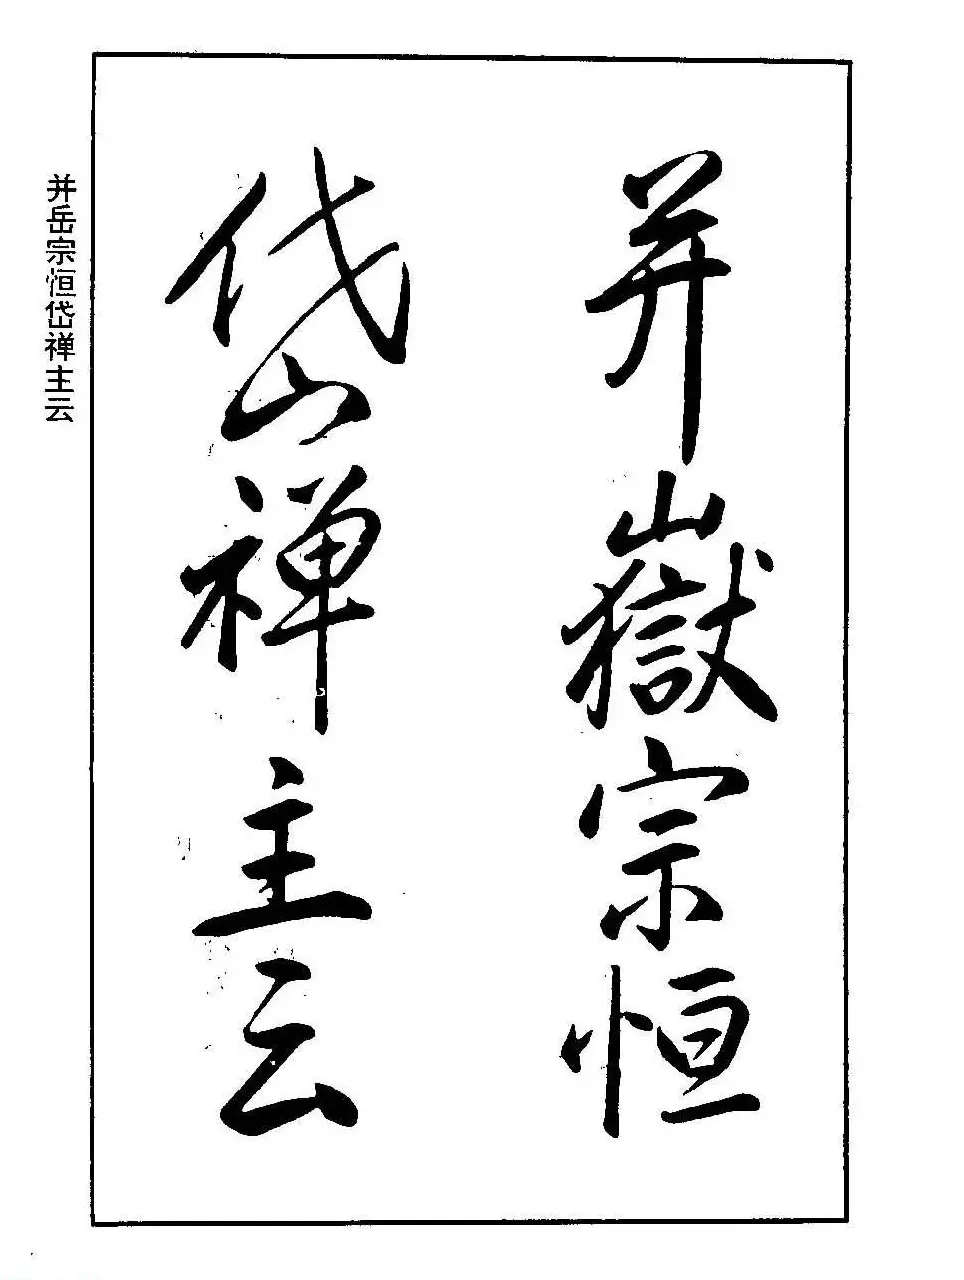 并嶽宗恒
岱禅主云
并岳宗恒岱禅主云